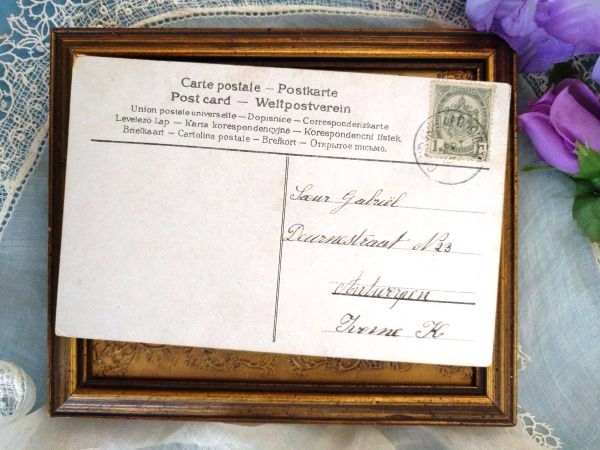 Carte postale – Postkarte
Post card – Weltpostverein
Union postale universelle – Dopisnice – Correspondenzkarte
Levelező Lap – Karta korespondencyjna – Korespondenčni listek.
Briefkaart – Cartolina postale – Brefkort – Открытое письмо.
Sœur Gabriël
Deurnestraat N 23
Antwerpen
Ivonne K